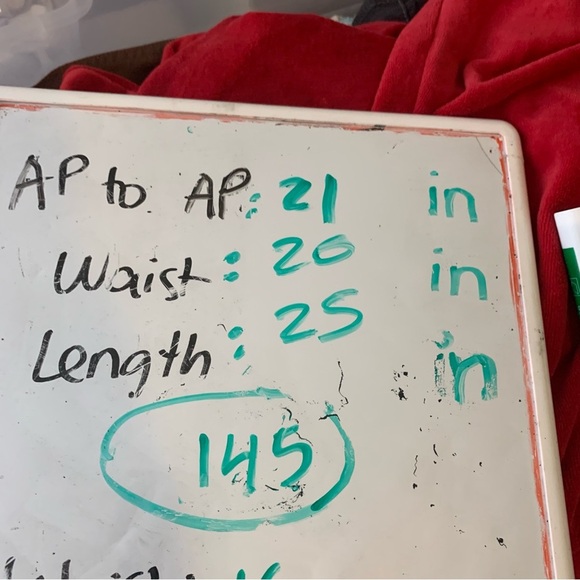 AP to AP: 21 in
Waist: 20 in
Length: 25 in
145